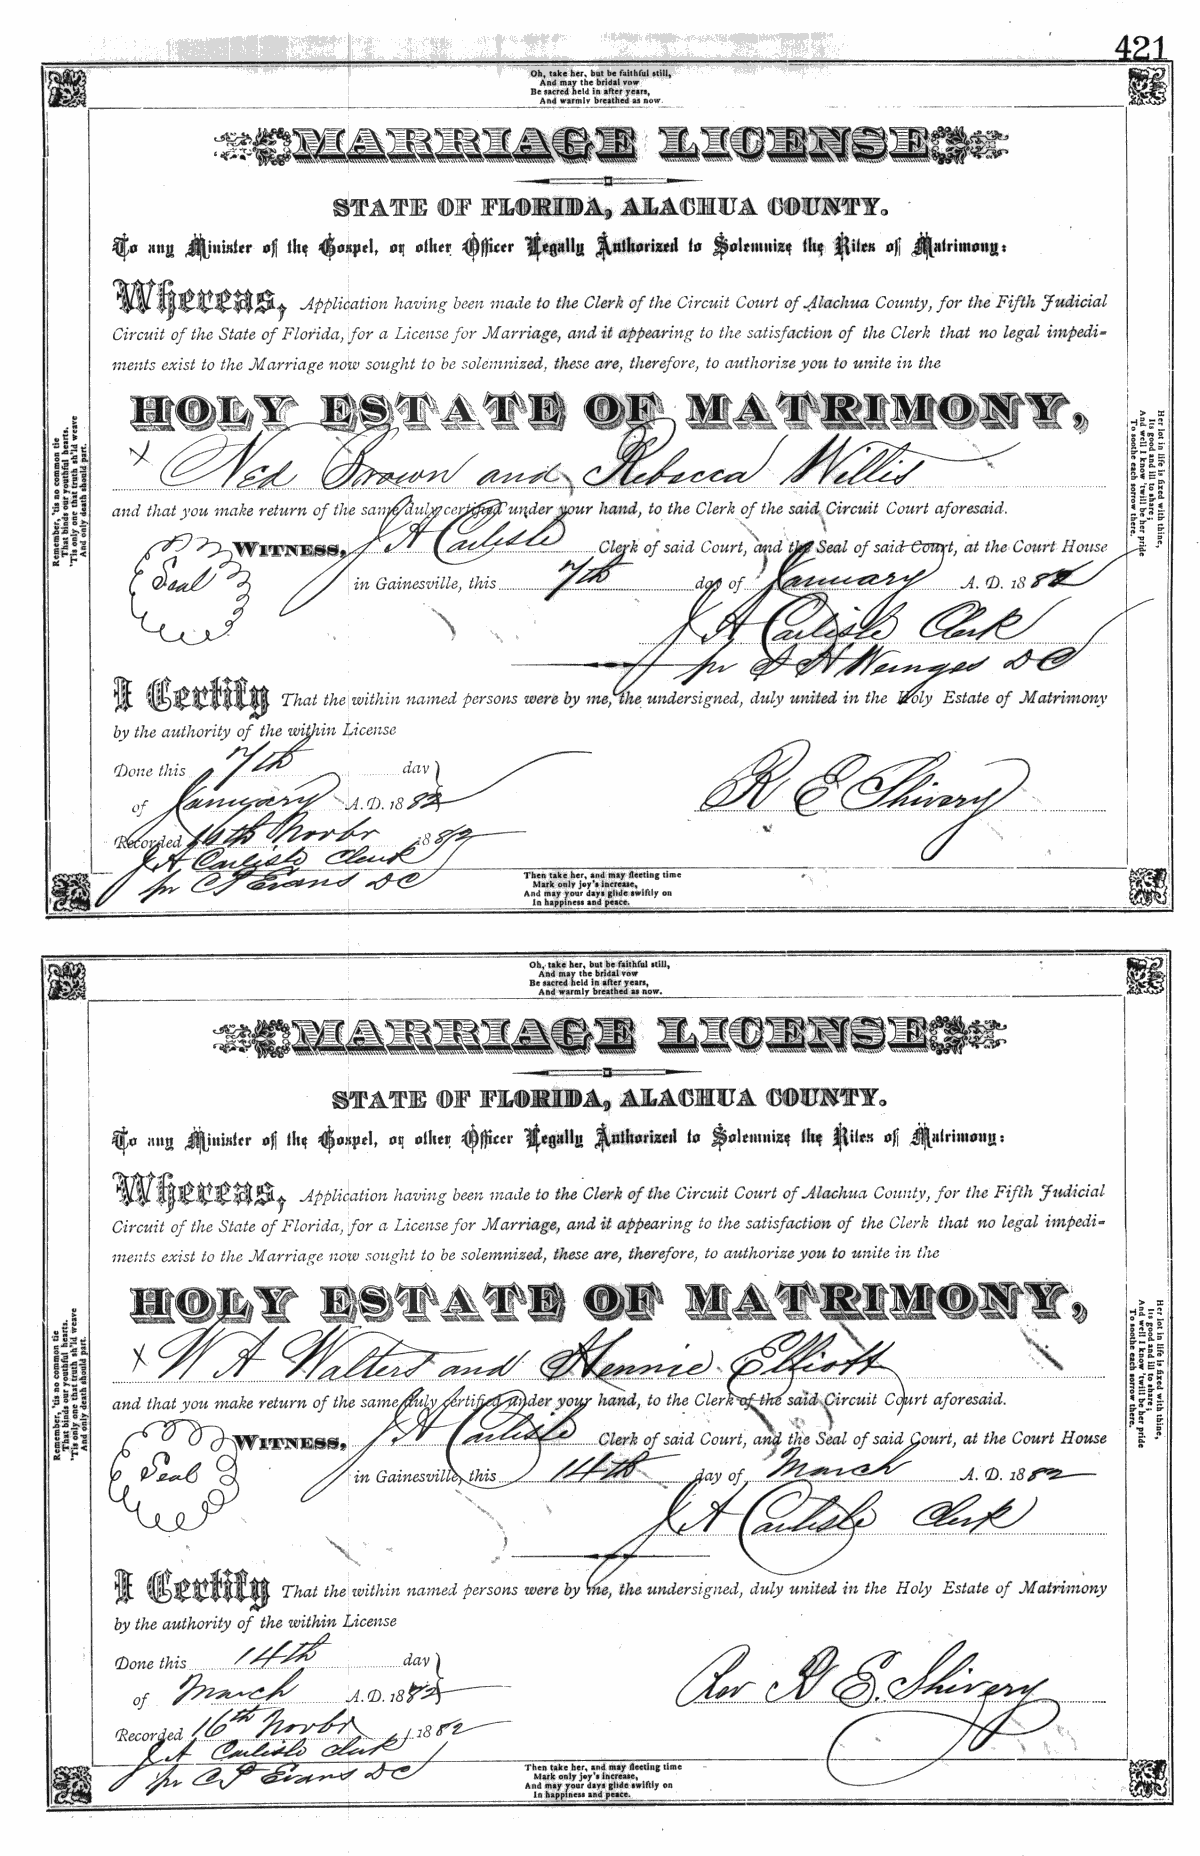 421
Oh, take her, but be faithful still,
And may the bridal vow
Be sacred held in after years,
And warmly breathed as now.
MARRIAGE LICENSE
STATE OF FLORIDA, ALACHUA COUNTY.
To any Minister of the Gospel, or other Officer Legally Authorized to Solemnize the Rites of Matrimony:
Whereas, Application having been made to the Clerk of the Circuit Court of Alachua County, for the Fifth Judicial
Circuit of the State of Florida, for a License for Marriage, and it appearing to the satisfaction of the Clerk that no legal impedi-
ments exist to the Marriage now sought to be solemnized, these are, therefore, to authorize you to unite in the
HOLY ESTATE OF MATRIMONY,
x Ned Brown and Rebecca Willis
and that you make return of the same duly certified under your hand, to the Clerk of the said Circuit Court aforesaid.
WITNESS, J A Carlisle Clerk of said Court, and the Seal of said Court, at the Court House
Seal
in Gainesville, this 7th day of January A. D. 1882
J A Carlisle Clerk
pr S H Wienges DC
I Certify That the within named persons were by me, the undersigned, duly united in the Holy Estate of Matrimony
by the authority of the within License
Done this 7th day
of January A.D. 1882
R E Shivery
Recorded 16th Novbr 1882
J A Carlisle Clerk
pr C P Evans DC
Remember, 'tis no common tie
That binds our youthful hearts,
'Tis only one that truth sh'ld weave
And only death should part.
Her lot in life is fixed with thine,
Its good and ill to share;
And well I know 'twill be her pride
To soothe each sorrow there.
Then take her, and may fleeting time
Mark only joy's increase,
And may your days glide swiftly on
In happiness and peace.
Oh, take her, but be faithful still,
And may the bridal vow
Be sacred held in after years,
And warmly breathed as now.
MARRIAGE LICENSE
STATE OF FLORIDA, ALACHUA COUNTY.
To any Minister of the Gospel, or other Officer Legally Authorized to Solemnize the Rites of Matrimony:
Whereas, Application having been made to the Clerk of the Circuit Court of Alachua County, for the Fifth Judicial
Circuit of the State of Florida, for a License for Marriage, and it appearing to the satisfaction of the Clerk that no legal impedi-
ments exist to the Marriage now sought to be solemnized, these are, therefore, to authorize you to unite in the
HOLY ESTATE OF MATRIMONY,
x W A Walters and Hennie Elliott
and that you make return of the same duly certified under your hand, to the Clerk of the said Circuit Court aforesaid.
WITNESS, J A Carlisle Clerk of said Court, and the Seal of said Court, at the Court House
Seal
in Gainesville, this 14th day of March A. D. 1882
J A Carlisle Clerk
I Certify That the within named persons were by me, the undersigned, duly united in the Holy Estate of Matrimony
by the authority of the within License
Done this 14th day
of March A.D. 1882
Rev R E. Shivery
Recorded 16th Novbr 1882
J A Carlisle Clerk
pr C P Evans DC
Remember, 'tis no common tie
That binds our youthful hearts,
'Tis only one that truth sh'ld weave
And only death should part.
Her lot in life is fixed with thine,
Its good and ill to share;
And well I know 'twill be her pride
To soothe each sorrow there.
Then take her, and may fleeting time
Mark only joy's increase,
And may your days glide swiftly on
In happiness and peace.